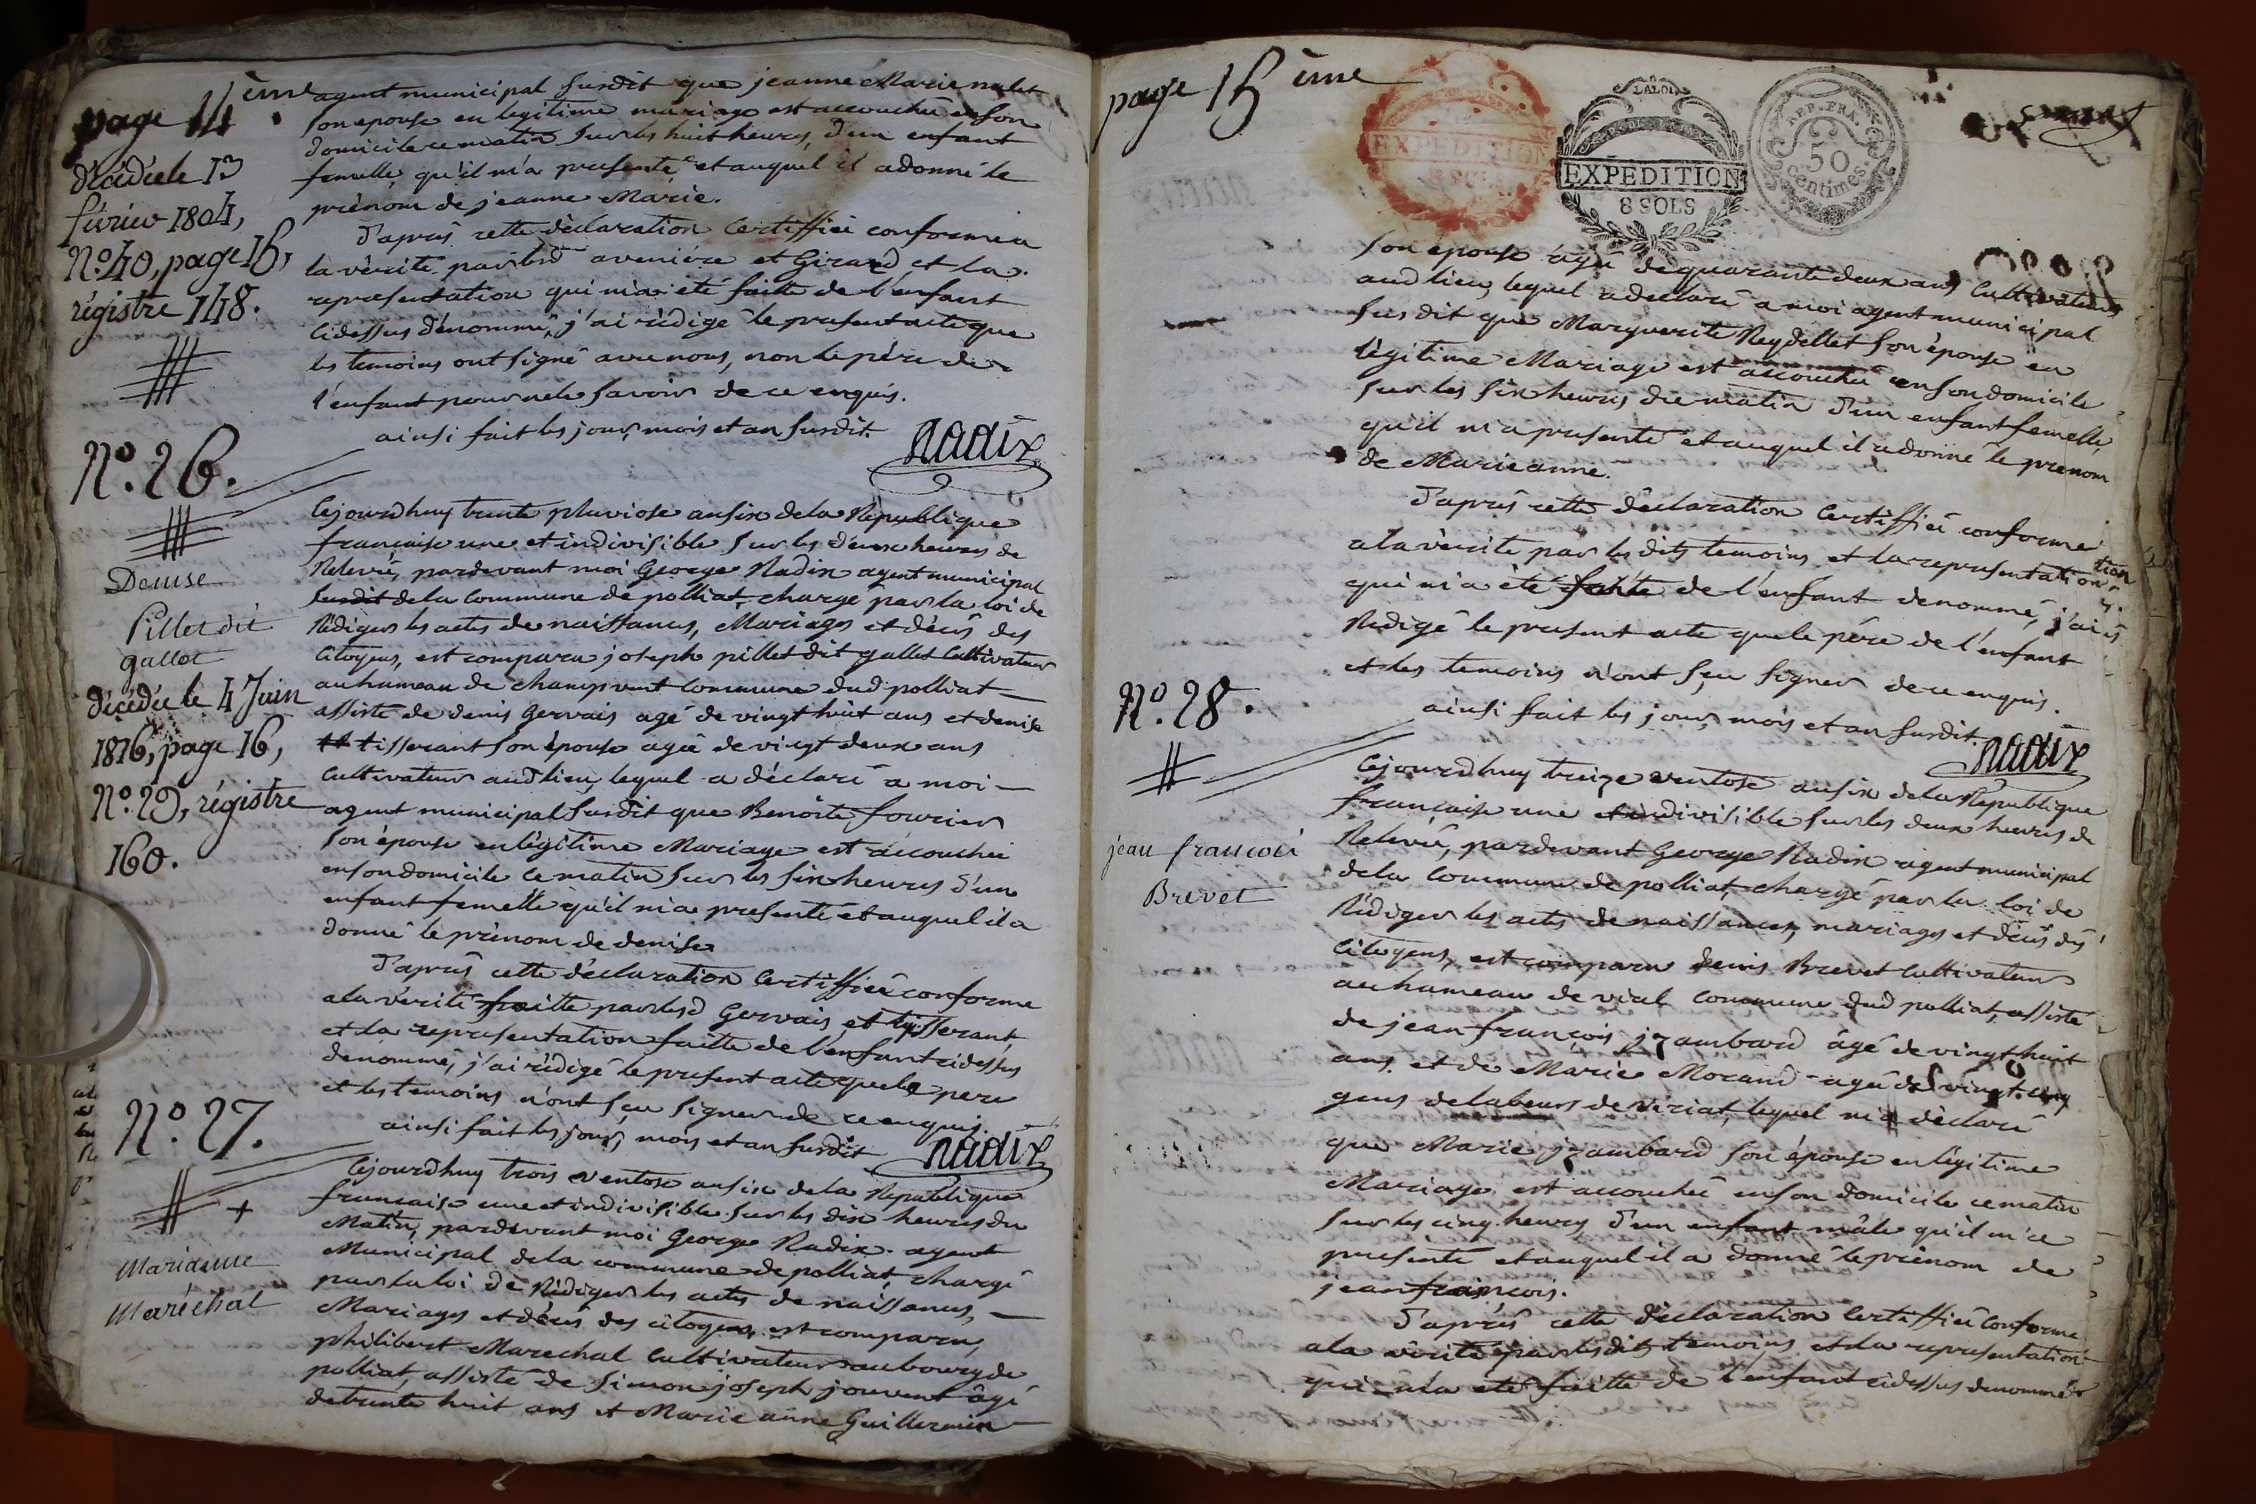 page 14 ème
décédée le 13
févrièr 1804,
N° 40, page 16,
régistre 148.
agent municipal susdit que jeanne Marie nalet
son epouse en legitime mariage est accouchée en son
domicile ce matin sur les huit heures, d'un enfant
femelle, qu'il m'a presenté et auquel il a donné le
prénom de jeanne Marie.
D'après cette déclaration certiffiée conforme a
la vérité par lesd avenière et Girard et la
representation qui m'a été faitte de l'enfant
cidessus dénommé, j'ai rédigé le present acte que
les temoins ont signé avec nous, non le père de
l'enfant pour ne le savoir de ce enquis.
ainsi fait les jour, mois et an susdit.
Nadix
N°. 26.
Denise
Pillet dit
gallet
décédée le 4 Juin
1816, page 16,
N°. 29, régistre
160.
Cejourdhuy trente pluviose an six de la Republique
francaise une et indivisible sur les deux heures de
Relevée, pardevant moi George Nadix agent municipal
susdit de la Commune de polliat, chargé par la loi de
Rédiger les actes de naissances, Mariages et décès des
Citoyens, est comparu joseph pillet dit gallet Cultivateur
au hameau de champ vent commune dud polliat
assisté de denis Gervais agé de vingt huit ans et denise
tisserant son épouse agée de vingt deux ans
Cultivateurs aud lieu, lequel a déclaré a moi
agent municipal susdit que Benoite fourier
son épouse en légitime Mariage est accouchée
en son domicile ce matin sur les six heures d'un
enfant femelle qu'il m'a presenté et auquel il a
donné le prénom de denise
D'après cette déclaration certiffiée conforme
a la vérité faitte par lesd Gervais et tisserant
et la representation faitte de l'enfant cidessus
denommé, j'ai rédigé le present acte que le pere
et les temoins n'ont sçu signer de ce enquis.
ainsi fait les jour, mois et an susdit
Nadix
N°. 27.
+
Marianne
Maréchal
Cejourdhuy trois ventose an six de la Republique
francaise une et indivisible sur les dix heures du
Matin, pardevant moi George Nadix agent
Municipal de la commune de polliat, chargé
par la loi de Rédiger les actes de naissances,
Mariages et décès des citoyens, est comparu,
philibert Marechal Cultivateur au bourg de
polliat, assisté de simon joseph jouvent âgé
de trente huit ans et Marie anne Guillermin
page 15 ème
EXPEDITION
LA LOI
EXPEDITION
8 SOLS
REP. FRA.
50
centimes
son épouse âgée de quarante deux ans Cultivateurs
aud lieu, lequel a declaré a moi agent municipal
susdit que Marguerite Reydellet son épouse en
légitime Mariage est accouchée en son domicile
sur les six heures du matin d'un enfant femelle
qu'il m'a presenté et auquel il a donné le prenom
de Marieanne.
D'après cette déclaration certiffiée conforme
a la vérité par les dits temoins et la representation
qui m'a été faite de l'enfant denommé, j'ai
Redigé le present acte que le père de l'enfant
et les temoins n'ont sçu signer de ce enquis.
ainsi fait les jour, mois et an susdit.
Nadix
N°. 28.
jean francois
Brevet
Cejourdhuy treize ventose an six de la Republique
francaise une et indivisible sur les deux heures de
Relevée, pardevant George Nadix agent municipal
de la Commune de polliat, chargé par la loi de
Rédiger les actes de naissances, mariages et décès des
Citoyens, est comparu denis Brevet Cultivateur
au hameau de vial commune dud polliat, assisté
de jean francois jzambard âgé de vingt huit
ans et de Marie Morand agée de vingt cinq
gens de labeurs de viriat, lequel m'a déclaré
que Marie jzambard son épouse en légitime
Mariage est accouchée en son domicile ce matin
sur les cinq heures d'un enfant mâle qu'il m'a
presenté et auquel il a donné le prénom de
jean francois.
D'après cette déclaration certiffiée conforme
a la vérité par lesdits temoins et la representation
qui m'a été faitte de l'enfant cidessus denommé